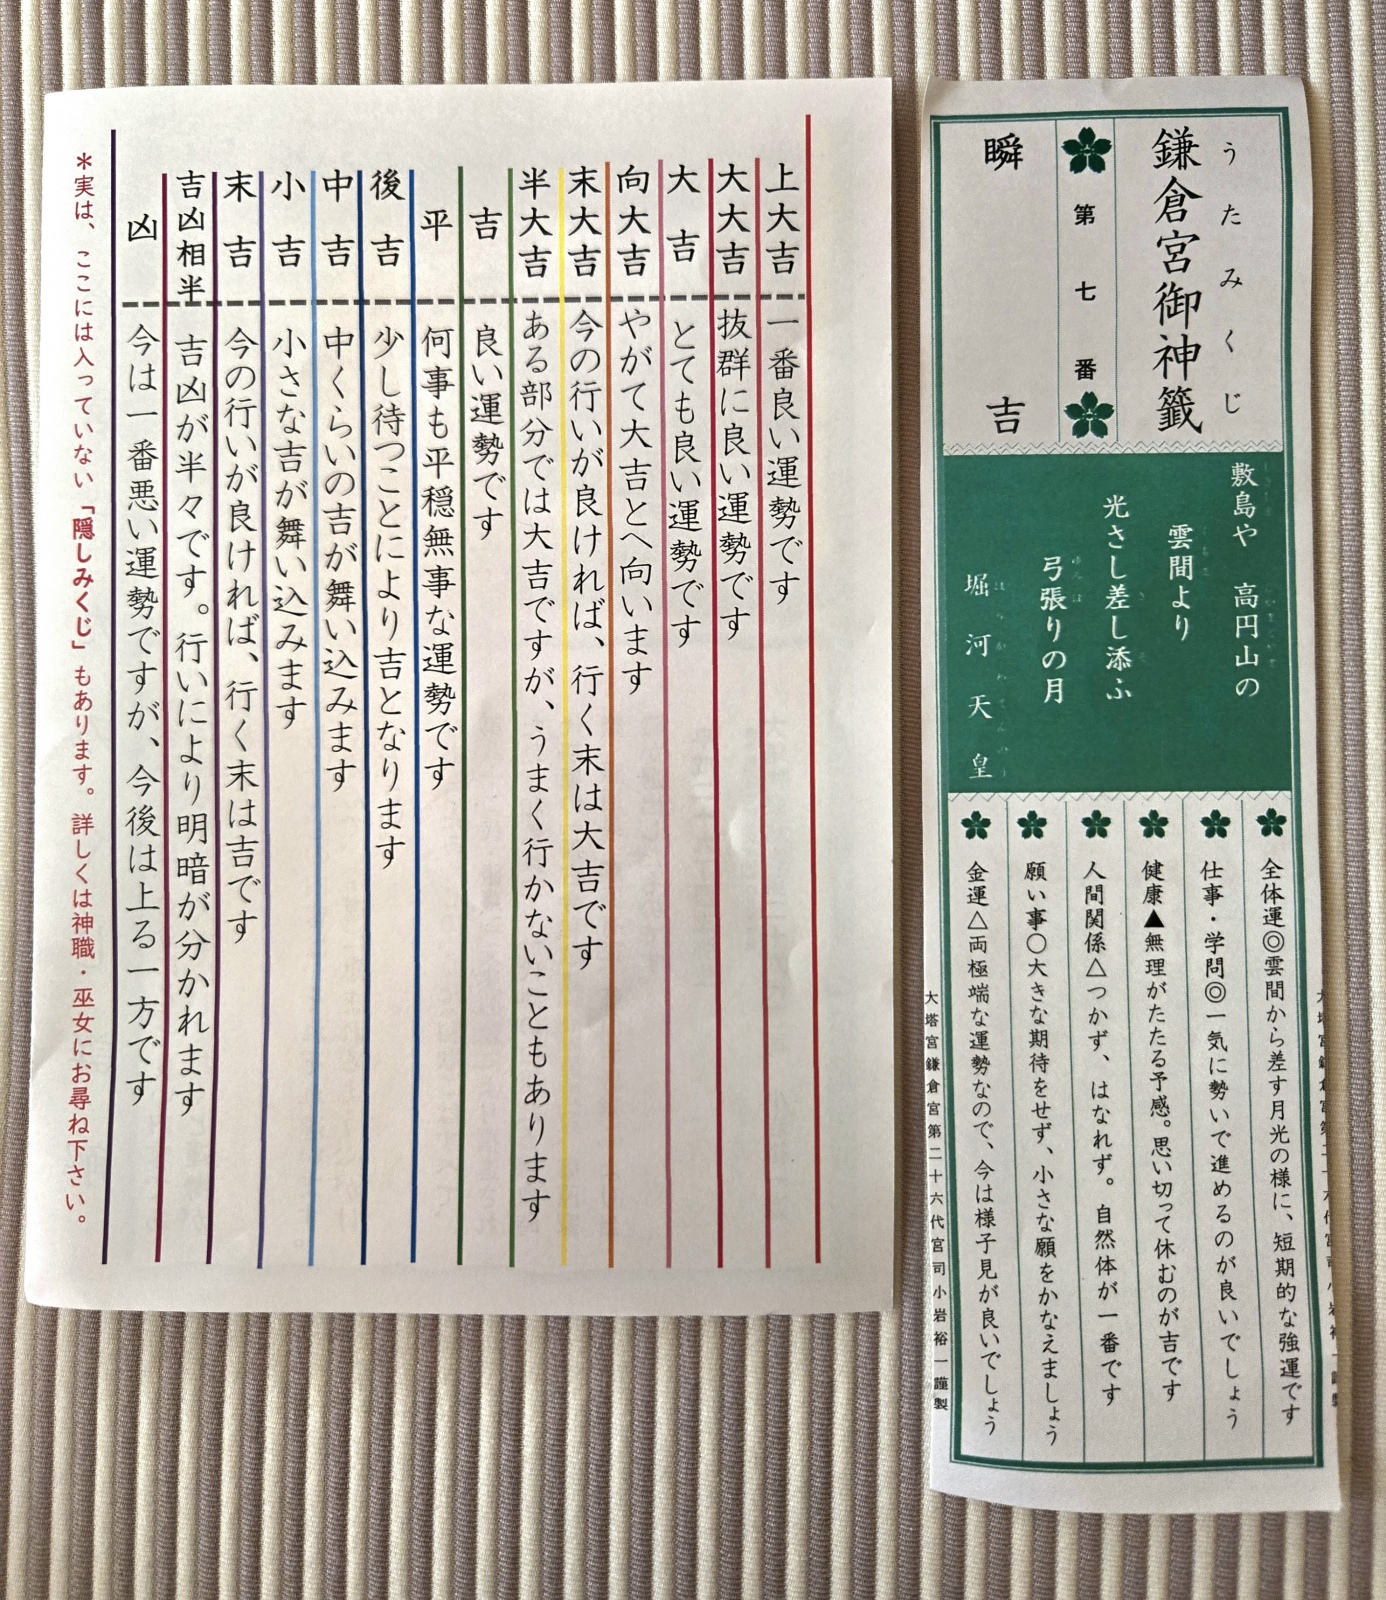 うたみくじ
鎌倉宮御神籤
第七番
瞬 吉
敷島や 高円山の
雲間より
光さし差し添ふ
弓張りの月
堀河天皇
全体運◎雲間から差す月光の様に、短期的な強運です
仕事・学問◎一気に勢いで進めるのが良いでしょう
健康▲無理がたたる予感。思い切って休むのが吉です
人間関係△つかず、はなれず。自然体が一番です
願い事○大きな期待をせず、小さな願をかなえましょう
金運△両極端な運勢なので、今は様子見が良いでしょう
大塔宮鎌倉宮第二十六代宮司小岩裕一謹製
上大吉 一番良い運勢です
大大吉 抜群に良い運勢です
大吉 とても良い運勢です
向大吉 やがて大吉とへ向います
末大吉 今の行いが良ければ、行く末は大吉です
半大吉 ある部分では大吉ですが、うまく行かないこともあります
吉 良い運勢です
平 何事も平穏無事な運勢です
後吉 少し待つことにより吉となります
中吉 中くらいの吉が舞い込みます
小吉 小さな吉が舞い込みます
末吉 今の行いが良ければ、行く末は吉です
吉凶相半 吉凶が半々です。行いにより明暗が分かれます
凶 今は一番悪い運勢ですが、今後は上る一方です
＊実は、ここには入っていない「隠しみくじ」もあります。詳しくは神職・巫女にお尋ね下さい。